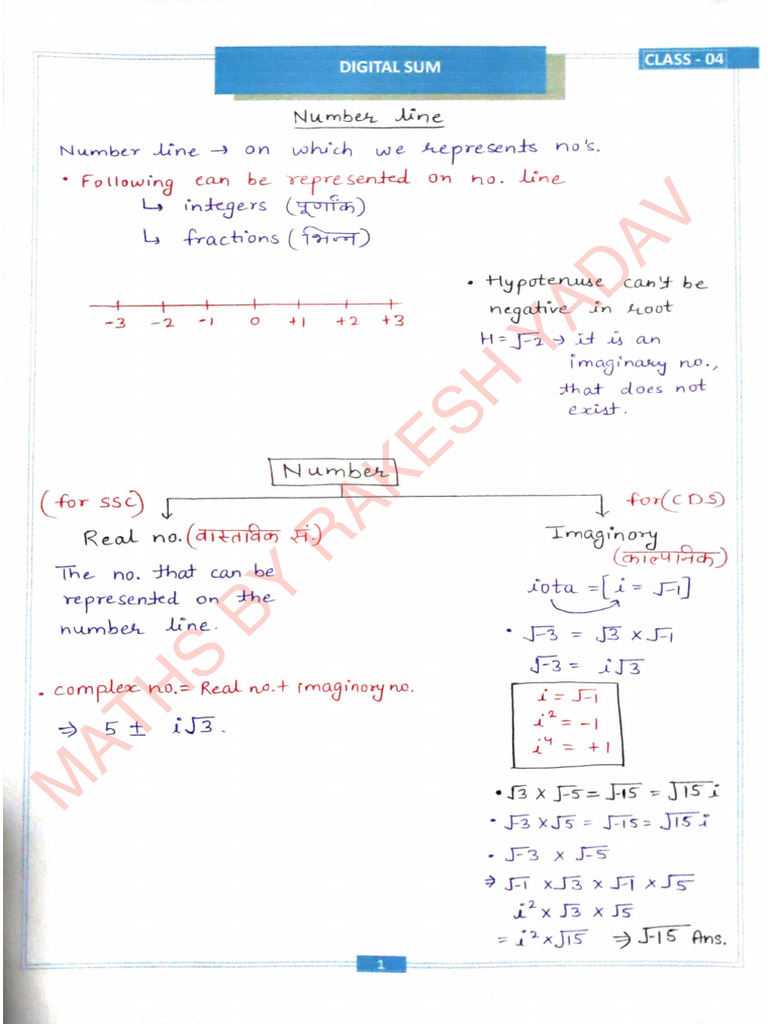 DIGITAL SUM
CLASS - 04
Number line
Number line → on which we represents no's.
• Following can be represented on no. line
↳ integers (पूर्णांक)
↳ fractions (भिन्न)
-3 -2 -1 0 +1 +2 +3
• Hypotenuse can't be
negative in root
H = √-2 → it is an
imaginary no.,
that does not
exist.
Number
(for SSC)
Real no. (वास्तविक सं.)
The no. that can be
represented on the
number line.
• complex no. = Real no. + imaginory no.
⇒ 5 ± i√3.
for (CDS)
Imaginory
(काल्पनिक)
iota = [i = √-1]
• √-3 = √3 × √-1
√-3 = i√3
i = √-1
i² = -1
i⁴ = +1
• √3 × √-5 = √-15 = √15 i
• √-3 × √5 = √-15 = √15 i
• √-3 × √-5
⇒ √-1 × √3 × √-1 × √5
i² × √3 × √5
= i² × √15 ⇒ √-15 Ans.
MATHS BY RAKESH YADAV
1